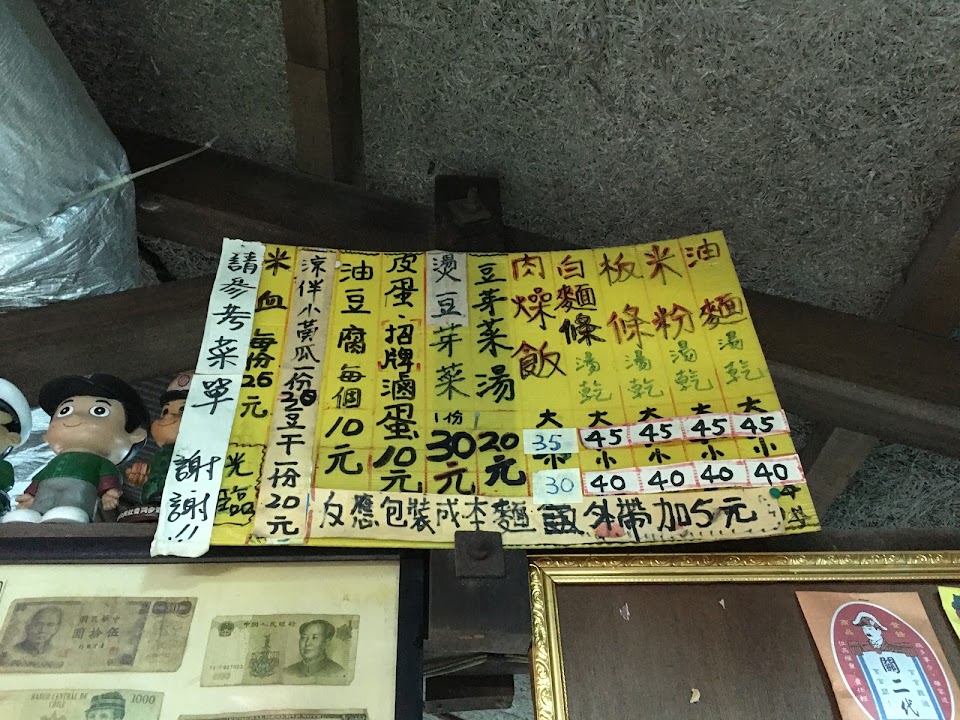 油麵 湯乾 大45 小40
米粉 湯乾 大45 小40
板條 湯乾 大45 小40
白麵條 湯乾 大45 小40
肉燥飯 大35 小30
豆芽菜湯 20元
燙豆芽菜 1份30元
皮蛋、招牌滷蛋10元
油豆腐每個10元
涼伴小黃瓜一份20 豆干一份20元
米血每份25元
光臨
請參考菜單
謝謝!!
反應包裝成本麵 外帶加5元
中華民國
伍拾圓
中国人民银行
BANCO CENTRAL DE CHILE
1000
關二代